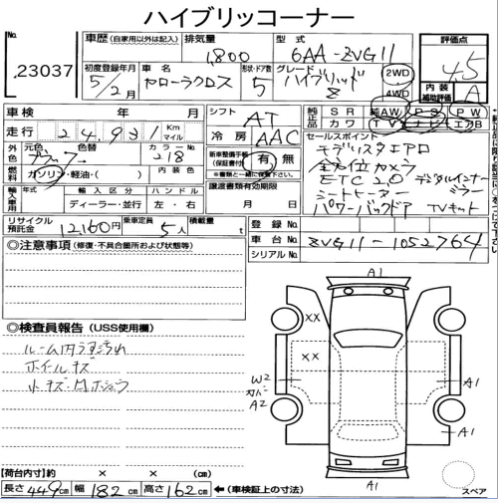 ハイブリッコーナー
No. 23037
車歴 (自家用以外は記入) 排気量 1,800 型式 6AA-ZVG11 評価点 4.5
初度登録年月 5/2月 車名 カローラクロス 形状・ドア数 5 グレード ハイブリッド Z 2WD 4WD 内装補助評価 A
車検 年 月 シフト AT 純正品 SR 純AW PS PW
走行 24,931 Km マイル 冷房 AAC カワ TV ナビ エアB
外色 元色 ブラック 色替 カラーNo. 218
燃料 ガソリン・軽油・( ) 内装色
新車整備手帳(保証書付) 有 無
※書類と一緒に別送下さい。
セールスポイント
モデリスタエアロ
全方位カメラ
ETC2.0 デジタルインナーミラー
シートヒーター
パワーバックドア TVキット
輸入車用 年式 輸入区分 ハンドル
ディーラー・並行 左・右
譲渡書類有効期限
月 日
リサイクル預託金 12,160円 乗車定員 5人 積載量 t
登録No.
車台No. ZVG11-1052764
シリアルNo.
◎注意事項 (修復・不具合箇所および状態等)
◎検査員報告 (USS使用欄)
ルーム内うす汚れ
ホイールキズ
小キズ・
A1
XX
XX
W2
カバー
A2
A1
A1
A1
【荷台内寸】 × × (cm)
長さ 449cm 幅 182cm 高さ 162cm ←(車検証上の寸法)
スペア